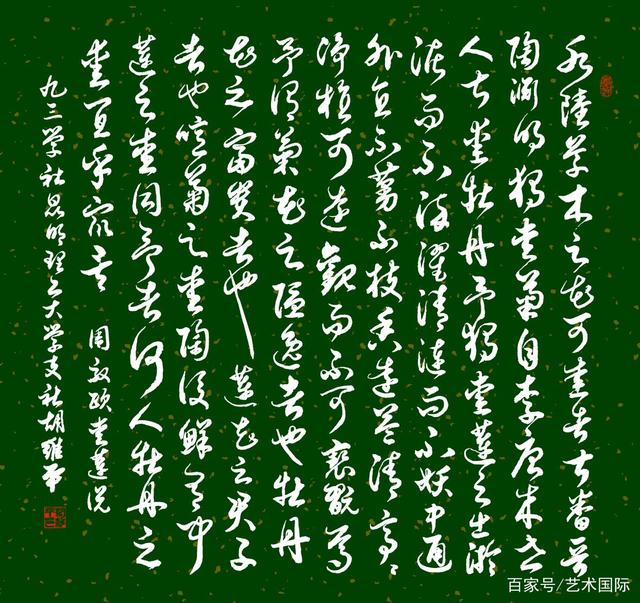 水陸草木之花可愛者甚蕃晋
陶渊明独愛菊自李唐来世
人甚愛牡丹予独愛蓮之出淤
泥而不染濯清漣而不妖中通
外直不蔓不枝香远益清亭亭
净植可远觀而不可亵翫焉
予谓菊花之隐逸者也牡丹
花之富贵者也蓮花之君子
者也噫菊之愛陶后鲜有闻
蓮之愛同予者何人牡丹之
愛宜乎众矣 周敦颐愛蓮说
九三学社昆明理工大学支社胡維平
百家号/艺术国际